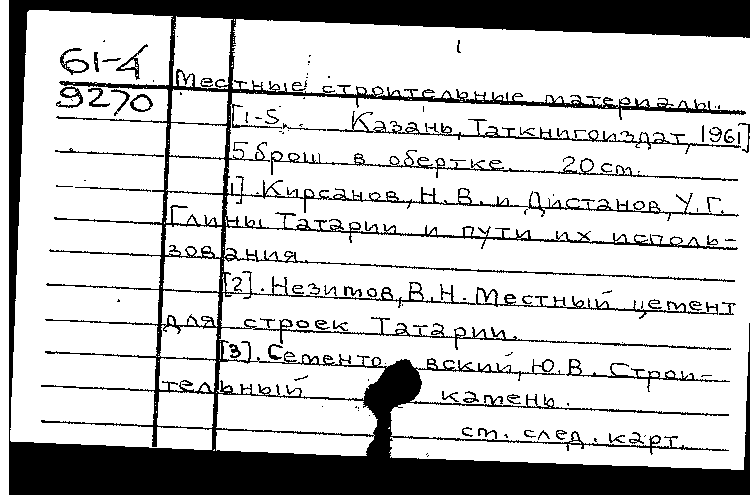 1
61-4
9270
Местные строительные материалы.
[1-5. Казань, Таткнигоиздат, 1961]
5 брош. в обертке. 20 cm.
1] Кирсанов, Н. В. и Дистанов, У. Г.
Глины Татарии и пути их исполь-
зования.
[2]. Незимов, В. Н. Местный цемент
для строек Татарии.
[3]. Сементовский, Ю. В. Строи-
тельный камень.
ст. след. карт.